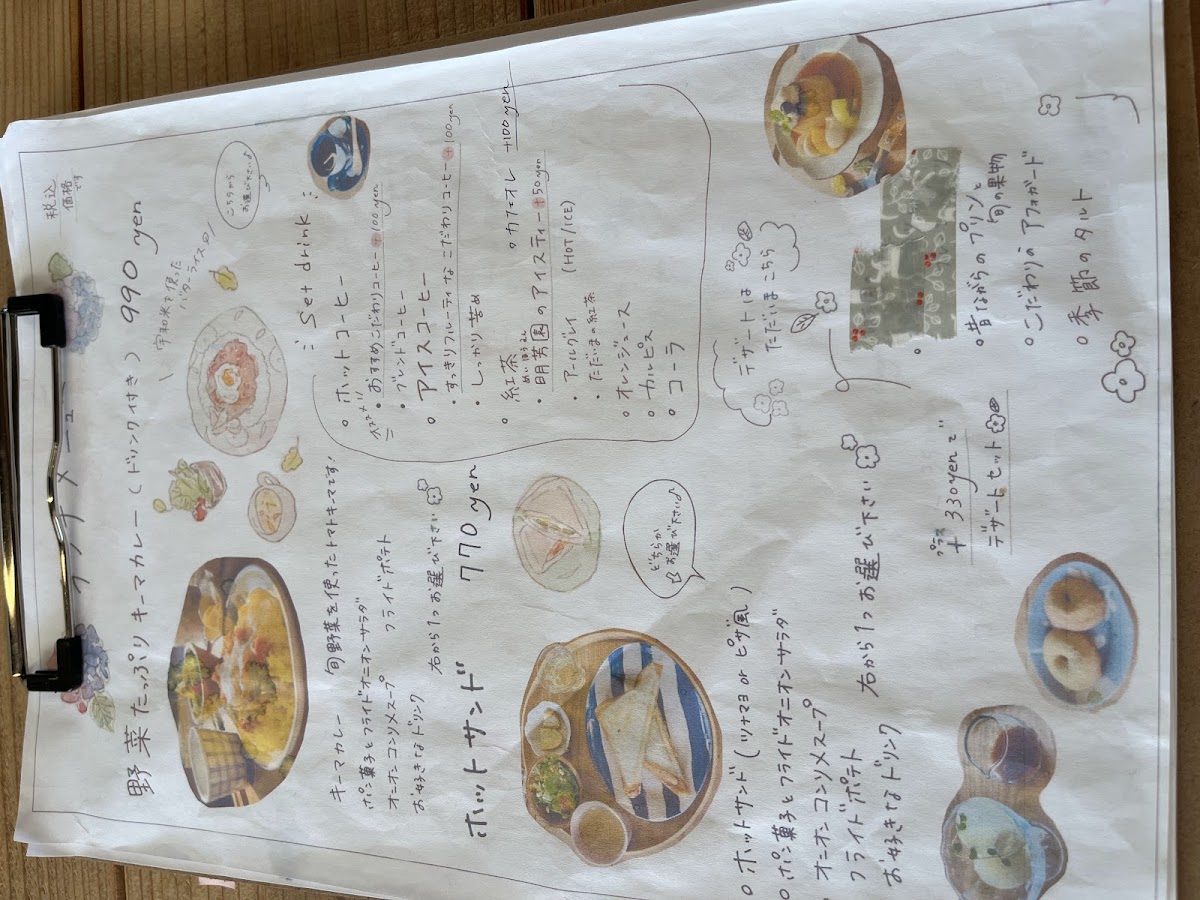 税込
価格
です
ランチメニュー
野菜たっぷりキーマカレー(ドリンク付き) 990 yen
宇和米を使った
バターライス
キーマカレー
旬野菜を使ったトマトキーマです!
ポン菓子とフライドオニオンサラダ
オニオンコンソメスープ
フライドポテト
お好きなドリンク
右から1つお選び下さい
ホットサンド 770 yen
どちらか
お選び下さい♪
ホットサンド(ツナマヨ or ピザ風)
ポン菓子とフライドオニオンサラダ
オニオンコンソメスープ
フライドポテト
お好きなドリンク
右から1つお選び下さい
こちらから
お選び下さい♪
Set drink
ホットコーヒー
オススメ!!
おすすめこだわりコーヒー+100yen
ブレンドコーヒー
アイスコーヒー
すっきりフルーティーなこだわりコーヒー+100yen
しっかり苦め
カフェオレ +100yen
紅茶
めいほうえん
明芳園のアイスティー+50yen
アールグレイ
(HOT/ICE)
ただいまの紅茶
オレンジュース
カルピス
コーラ
デザートは
ただいまこちら
昔ながらのプリンと
旬の果物
こだわりのアフォガード
季節のタルト
プラス
+330yenで
デザートセット